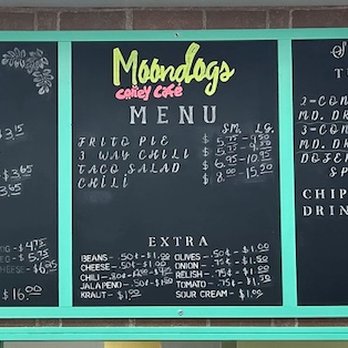 Moondogs
Coney Café
MENU
SM. LG.
FRITO PIE $ 5.75 - 9.50
3 WAY CHILI $ 5.75 -
TACO SALAD $ 6.95 - 10.95
CHILI $ 8.00 - 15.20
EXTRA
BEANS - .50¢ - $1.00
CHEESE - .50¢ - $1.00
CHILI
JALAPENO .50¢ - $1.00
KRAUT - $1.00
OLIVES - .50¢ - $1.00
ONION - .50¢ - $1.00
RELISH - .75¢ - $1.00
TOMATO - .75¢ - $1.50
SOUR CREAM - $1.00
3.15
3.65
3.95
- $4.75
- $5.75
CHEESE - $6.95
$16.00
2-CON
MD. DR
3-CON
MD. DR
CHIP
DRIN